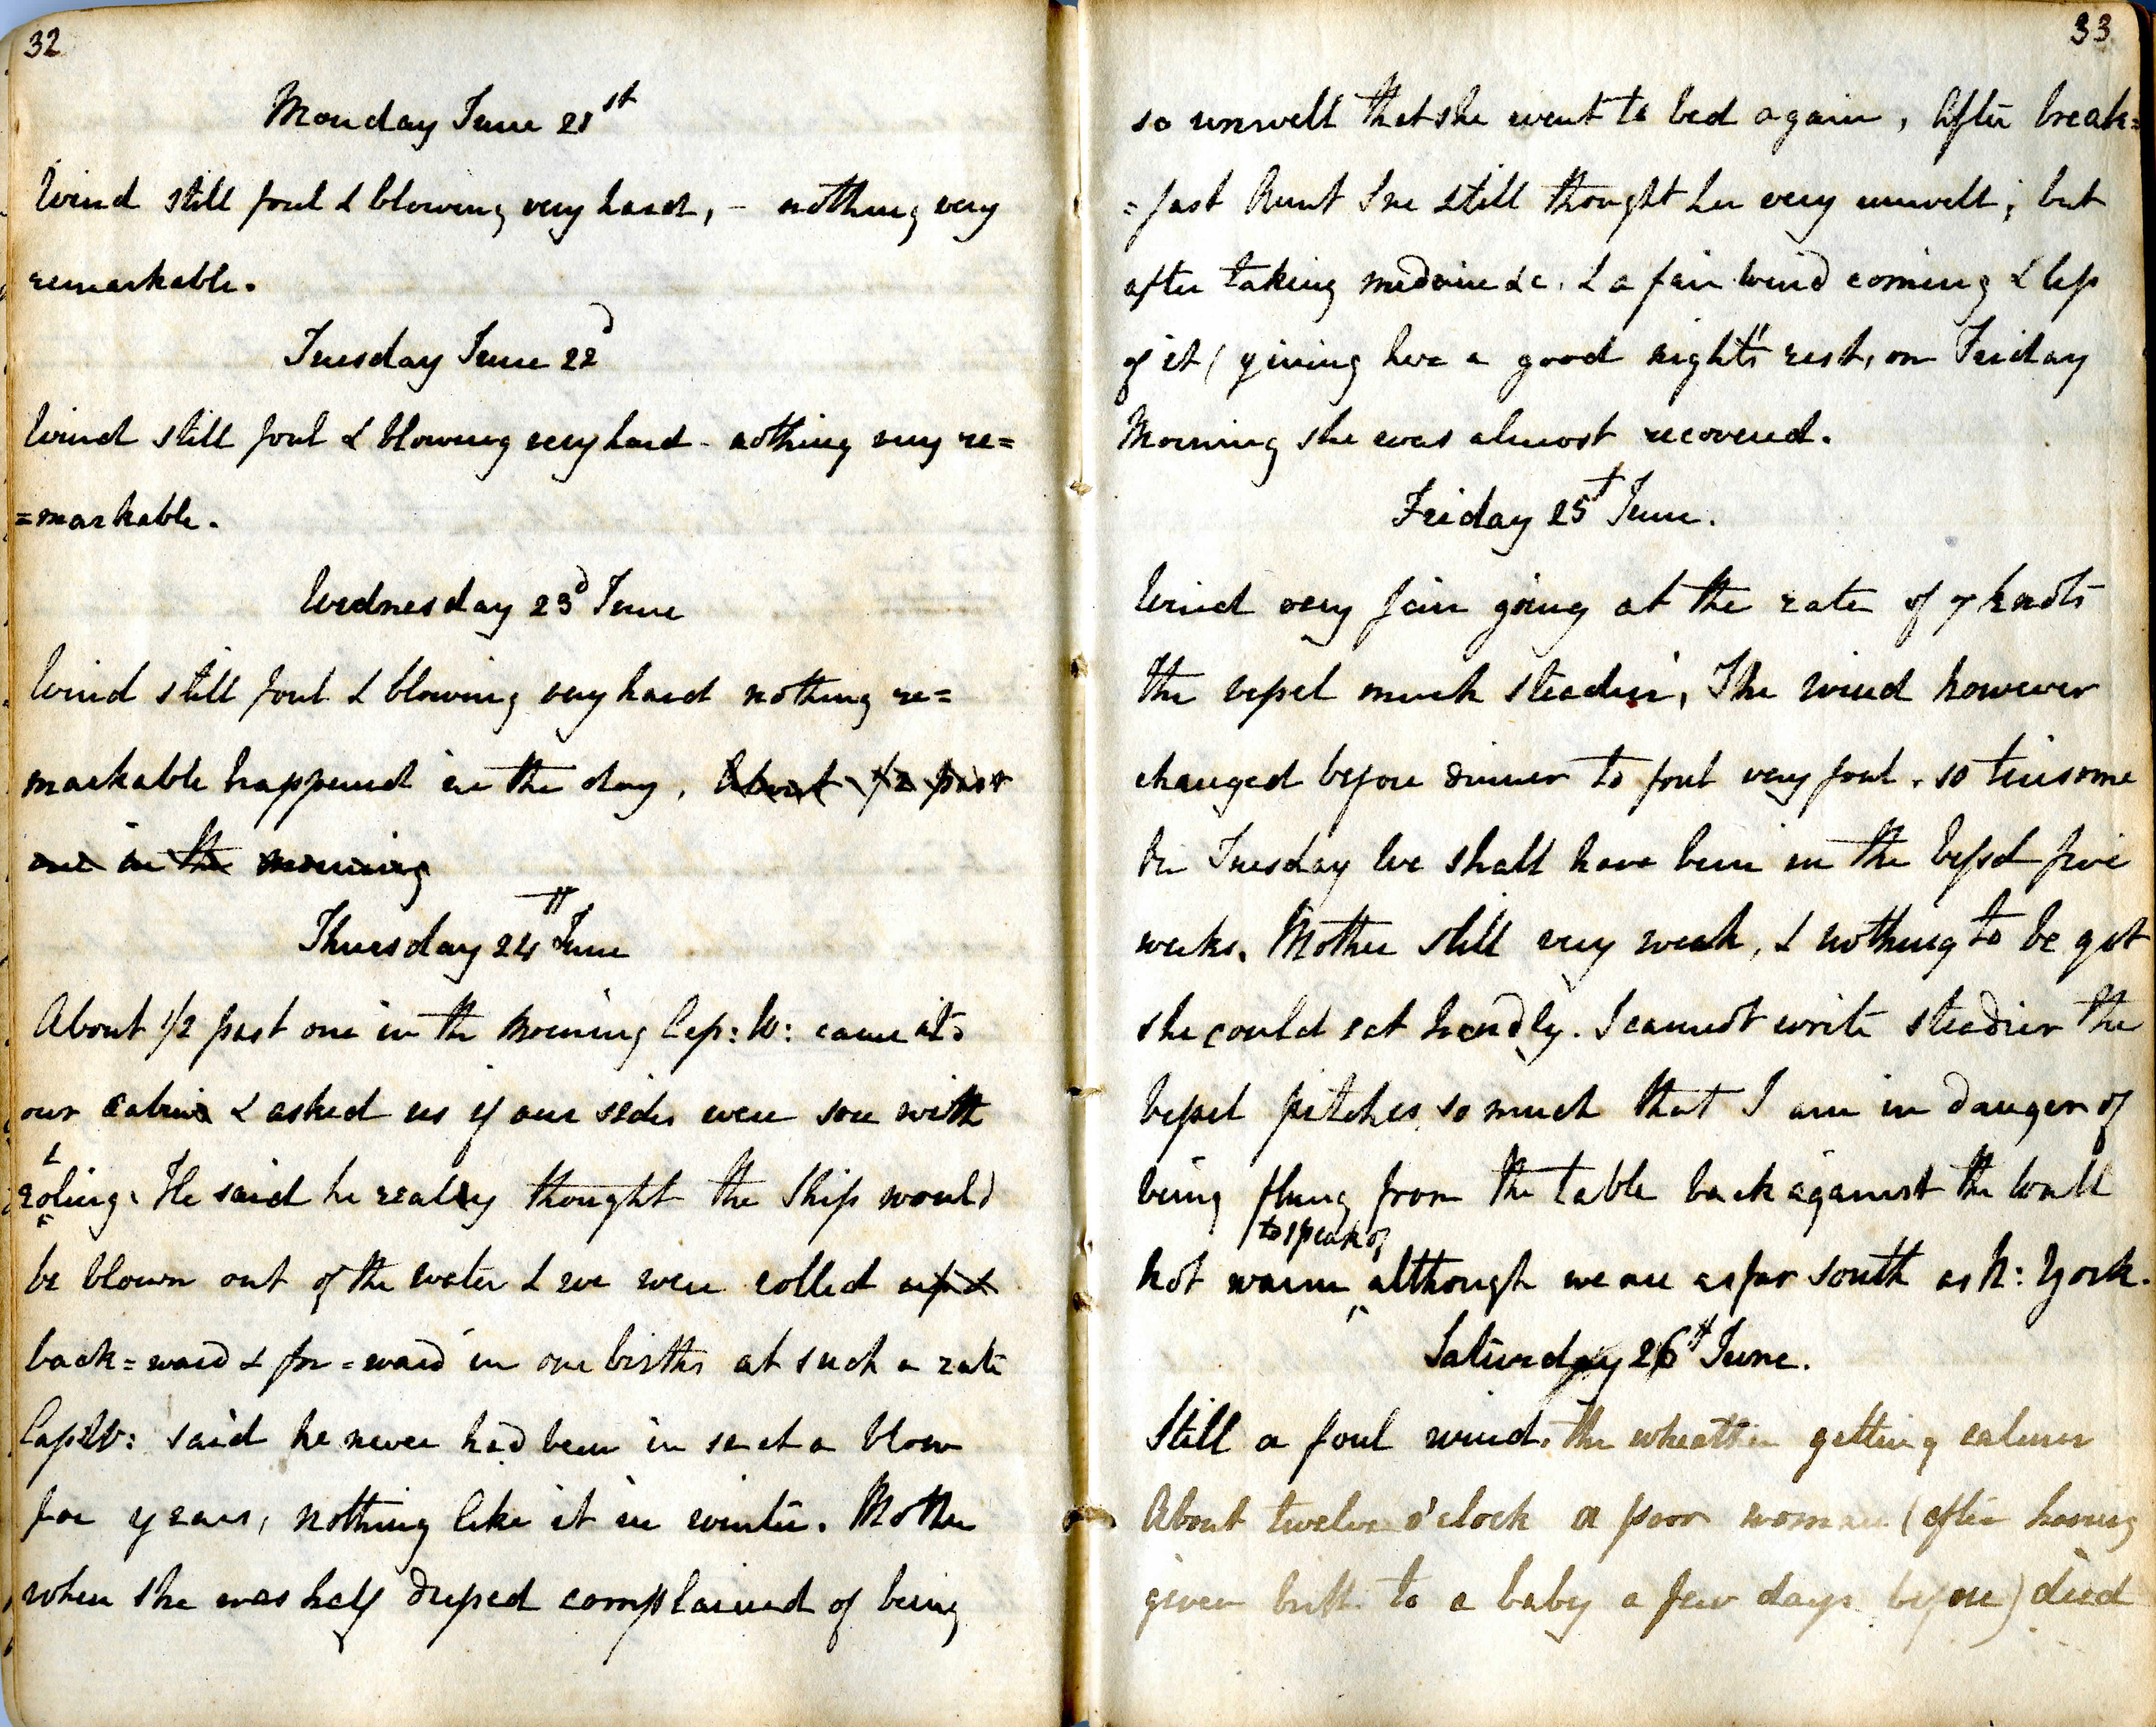 32
Monday June 21st
Wind still foul & blowing very hard, - nothing very
remarkable.
Tuesday June 22d
Wind still foul & blowing very hard - nothing very re=
=markable.
Wednesday 23d June
Wind still foul & blowing very hard nothing re=
markable happened in the day. About 1/2 past
one in the morning
Thursday 24th June
About 1/2 past one in the Morning Cap: W: came to
our cabin & asked us if our sides were sore with
roling. He said he really thought the Ship would
be blown out of the water & we were rolled
back=ward & for=ward in our births at such a rate
Cap: W: said he never had been in such a blow
for years, nothing like it in winter. Mother
when she was half dressed complained of being
33
so unwell that she went to bed again, After break=
=fast Aunt Ine still thought her very unwell; but
after taking medicine &c. & a fair wind coming & less
of it (giving her a good night's rest, on Friday
Morning she was almost recovered.
Friday 25t June.
Wind very fair going at the rate of 7 knots
the vessel much steadier, The wind however
changed before dinner to foul very foul. so tiresome
On Tuesday We shall have been in the Vessel five
weeks. Mother still very weak, & nothing to be got
she could eat hardly. I cannot write steadier the
Vessel pitches so much that I am in danger of
being flung from the table back against the Wall
Not warm to speak of although we are as far South as N: York.
Saturday 26th June.
Still a foul wind. the wheather getting calmer
About twelve o'clock a poor woman (after having
given birth to a baby a few days before) died